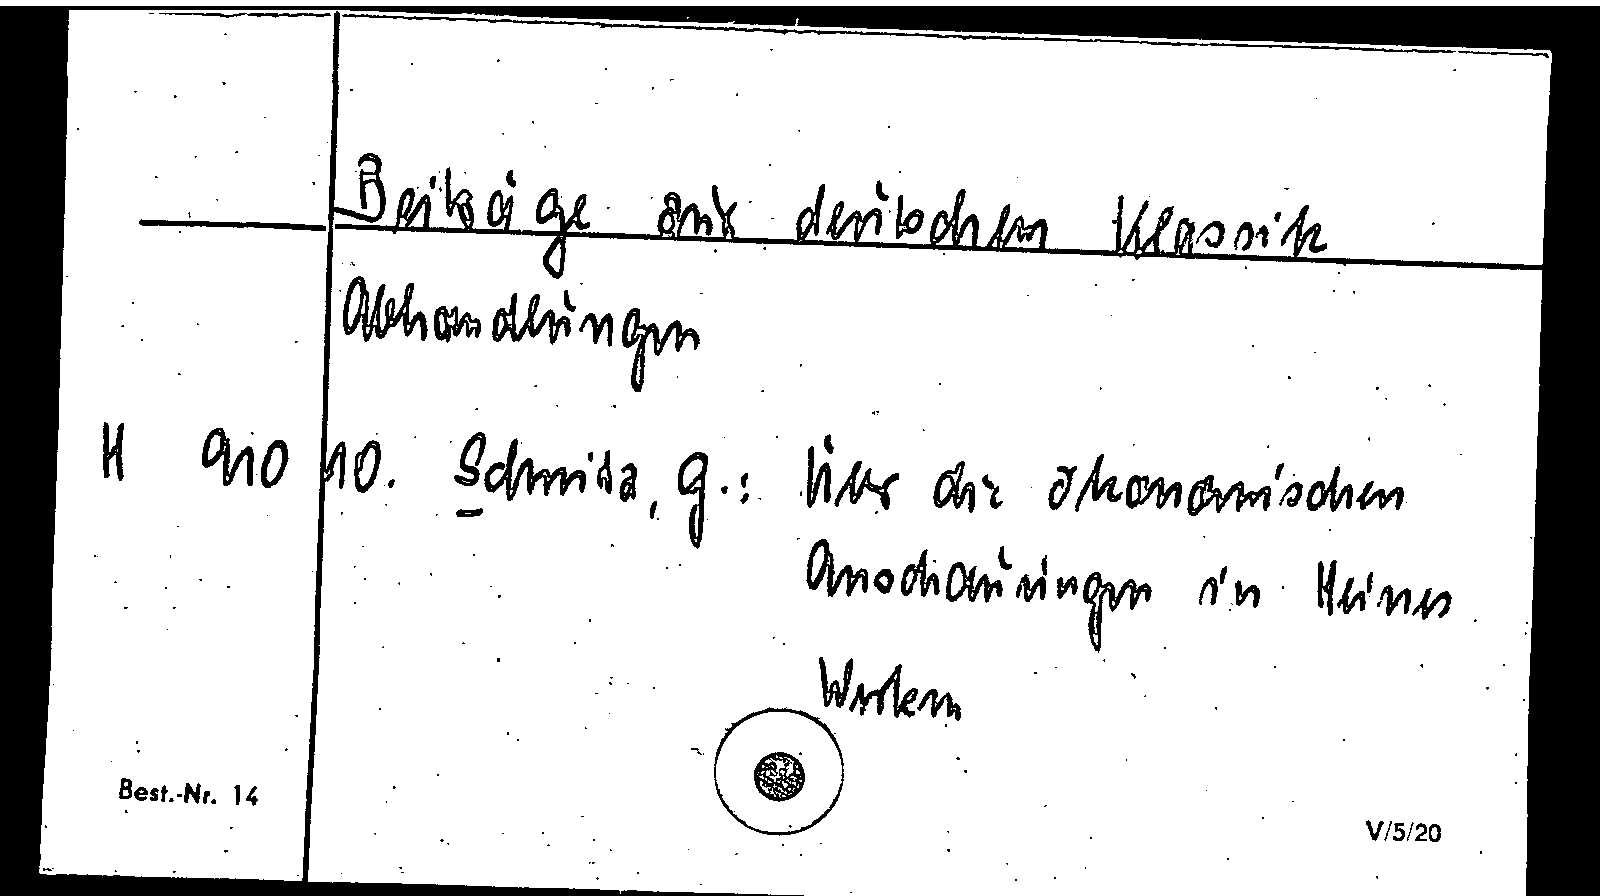 Beiträge zur deutschen Klassik
Abhandlungen
H 910 10. Schmitz, G.: Über die ökonomischen
Anschauungen in Heines
Werken
Best.-Nr. 14
V/5/20